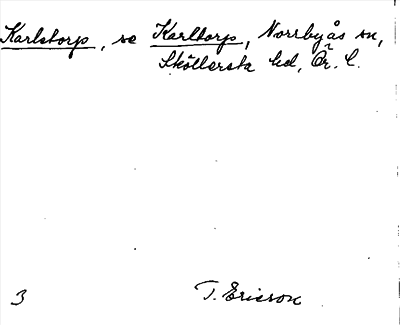 Karlstorp, se Karltorp, Norrbyås sn,
Sköllersta hd, Ör. l.
3 T. Ericson